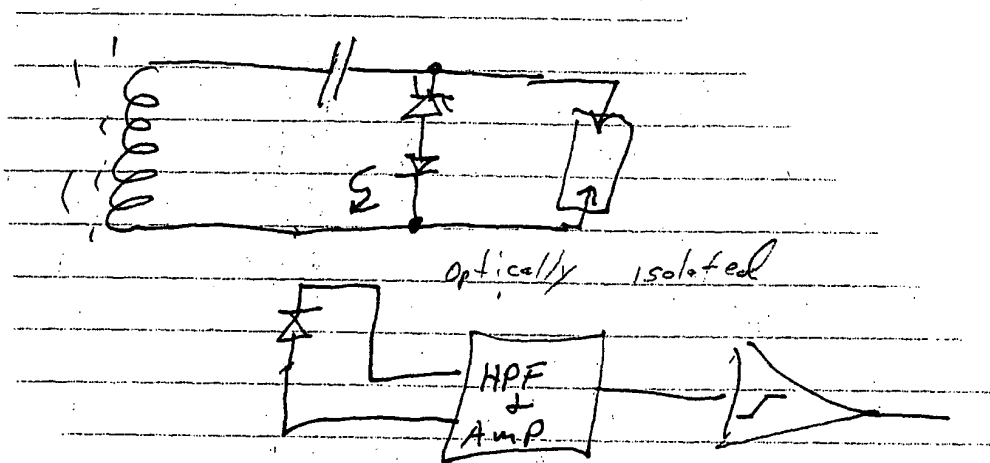 Optically isolated
HPF
&
Amp